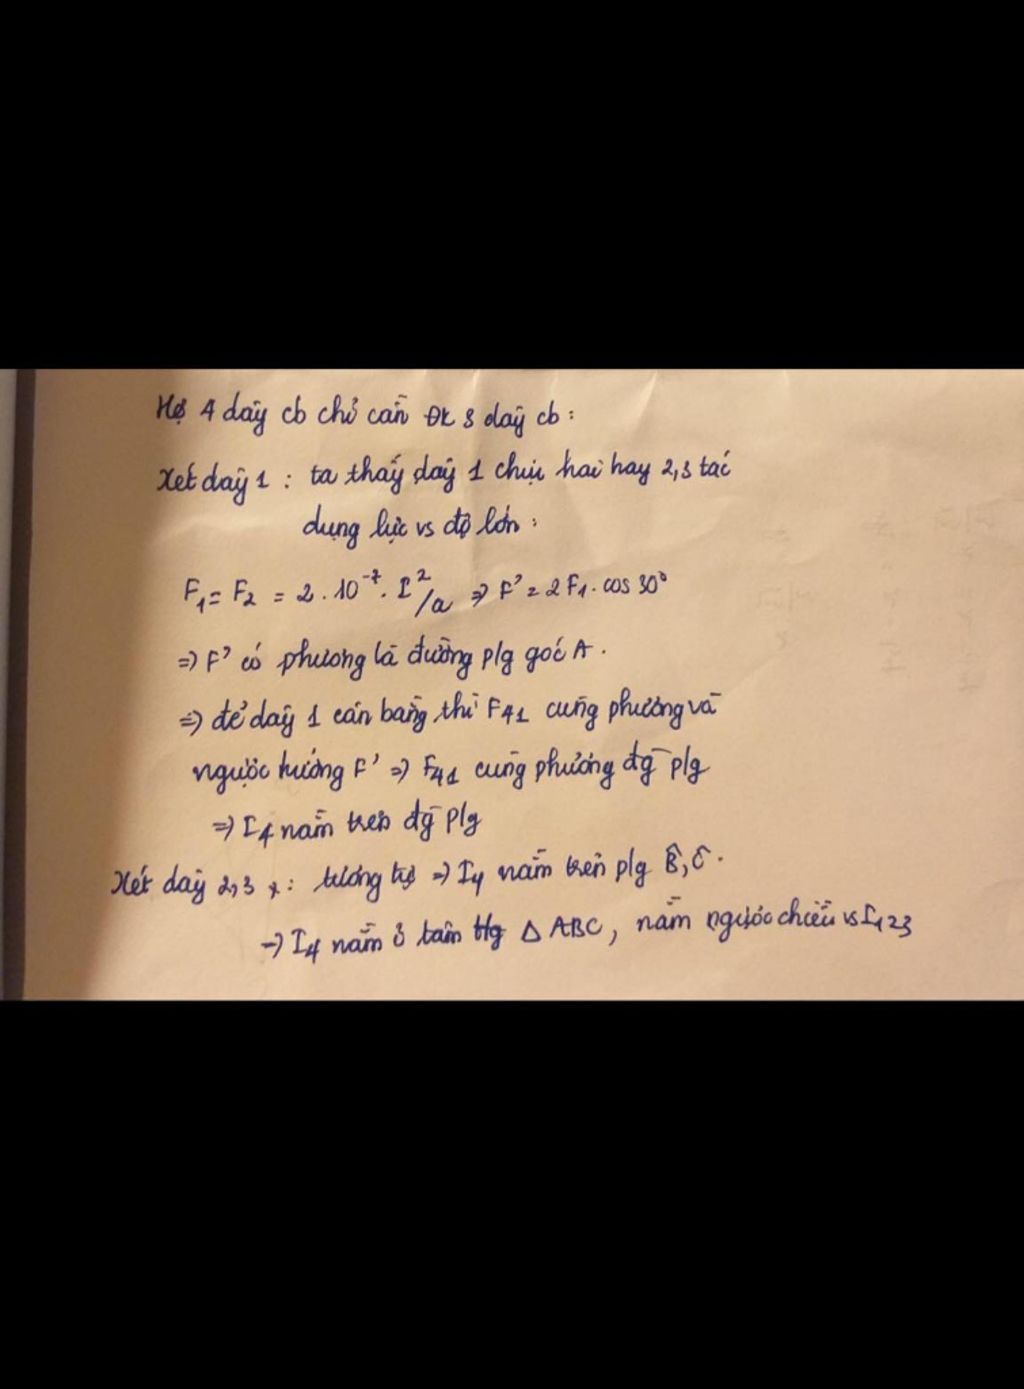 Hệ 4 dây cb chỉ cần ĐK 3 dây cb :
Xét dây 1 : ta thấy dây 1 chịu hai hay 2,3 tác
dụng lực vs độ lớn :
F₁ = F₂ = 2 . 10⁻⁷ . I²/a ⇒ F' = 2F₁ . cos 30°
⇒ F' có phương là đường p/g góc A .
⇒ để dây 1 cân bằng thì F₄₁ cùng phương và
ngược hướng F' ⇒ F₄₁ cùng phương đg p/g
⇒ I₄ nằm trên đg p/g
Xét dây 2,3 : tương tự ⇒ I₄ nằm trên p/g B̂, Ĉ .
→ I₄ nằm ở tâm Δ ABC, nằm ngược chiều vs I₁₂₃